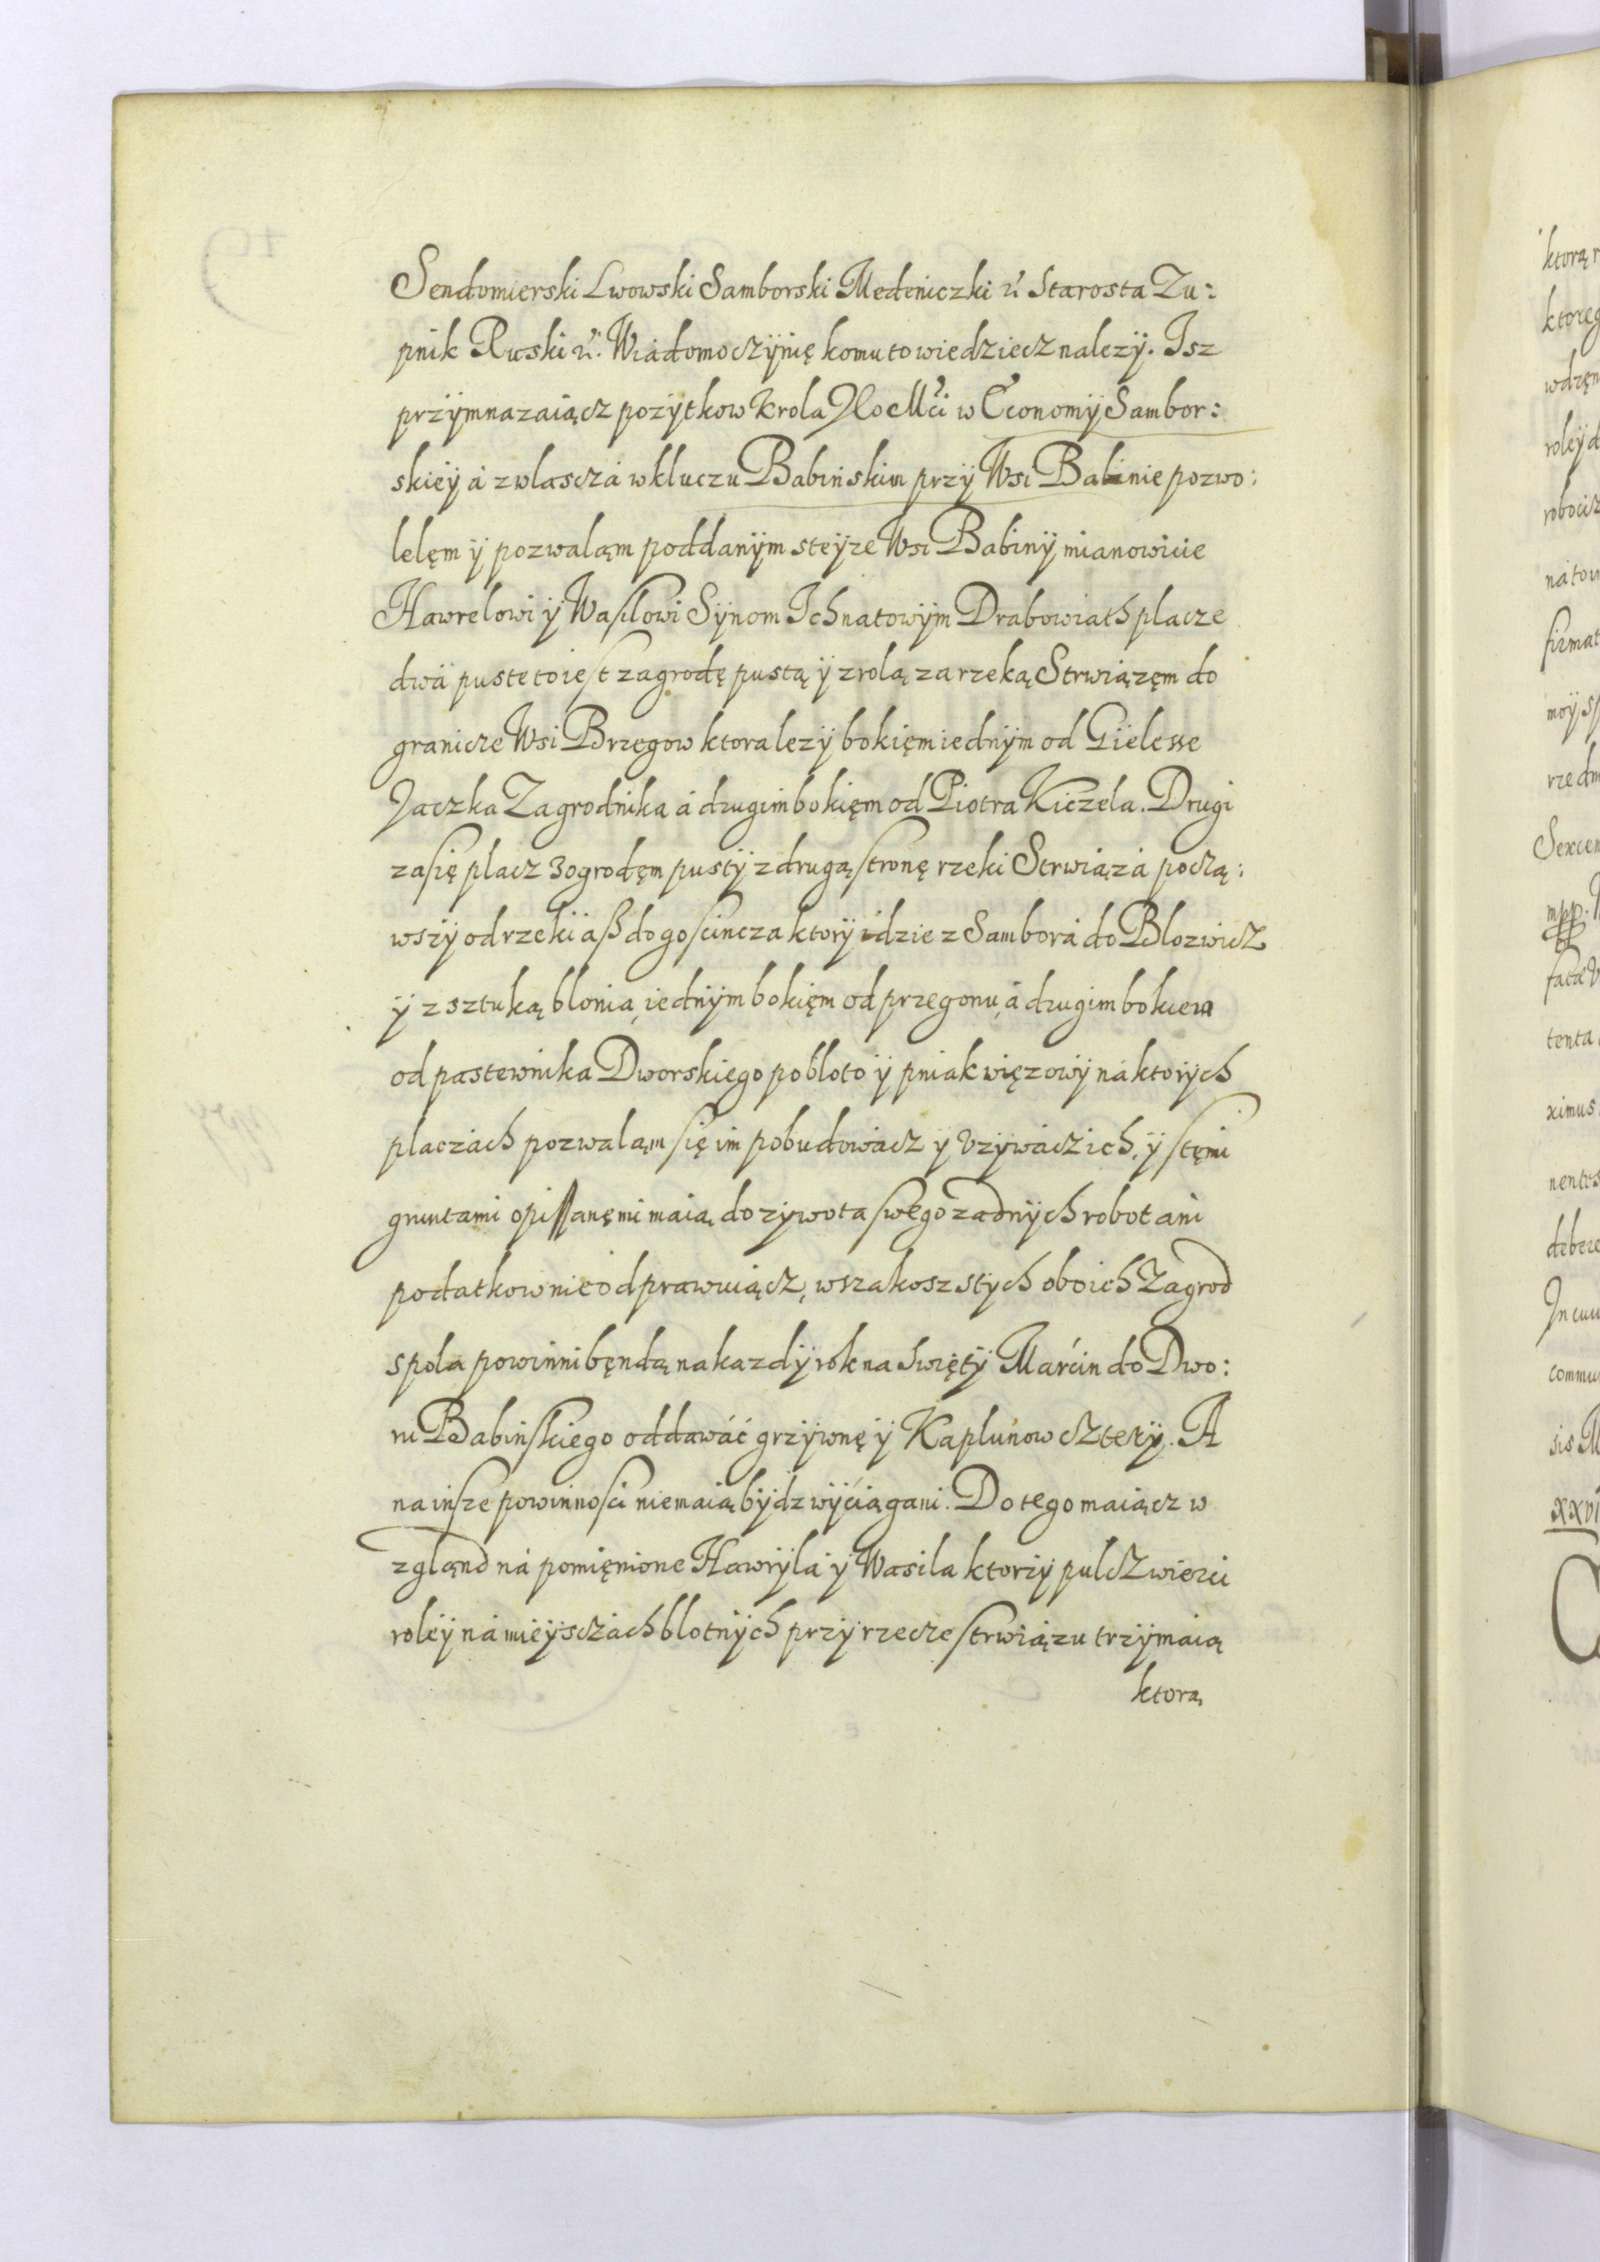 Sendomierski Lwowski Samborski Medeniczki rč Starosta Zu:
pnik Ruski rč. Wiádomo czÿnię komu to wiedziecz nalezÿ. Isz
przÿmnazaiącz pozÿtkow Krola Jlo Mći w Economÿ Sambor:
skieÿ á zwlasczá w kluczu Babinskim przÿ Wsi Babinie pozwo:
lelęm ÿ pozwaląm poddanÿm steÿze Wsi Babinÿ mianowicie
Hawrelowi ÿ Wasilowi Sÿnom Ichnatowÿm Drabowiath placze
dwá puste to iest zagrodę pustą ÿ z rolą za rzeką Strwiązęm do
granicze Wsi Brzegow ktora lezÿ bokięm iednÿm od Gielesse
Jaczka Zagrodnika á drugim bokięm od Piotra Kiczela. Drugi
zasię placz zogrodęm pustÿ z drugą stronę rzeki Strwiązá począ:
wszÿ od rzeki áß do goscincza ktorÿ idzie z Samborá do Blozwicz
ÿ z sztuką blonia, iednÿm bokięm od przegonu, á drugim bokiem
od pastewnika Dworskiego po bloto ÿ pniak więzowÿ ná ktorÿch
placzách pozwaląm się im pobudowácz ÿ vzÿwácz ich, ÿ stęmi
gruntami opissanęmi maią do zÿwota swego zadnÿch robot ani
podatkow nie odprawuiącz, wszakosz stÿch oboich Zagrod
spola powinni bęndą na kazdÿ rok na Swiętÿ Marćin do Dwo:
ru Babinskiego oddawáć grzÿwnę ÿ Kaplunow czterÿ. A
na insze powinnosci nie maią bÿdz wÿćiągani. Do tego maiącz w
zgląnd ná pomięnione Hawrÿlá ÿ Wasila ktorzÿ pulczwierci
roleÿ ná mieÿsczách blotnÿch przÿ rzecze strwiązu trzÿmaią
ktorą